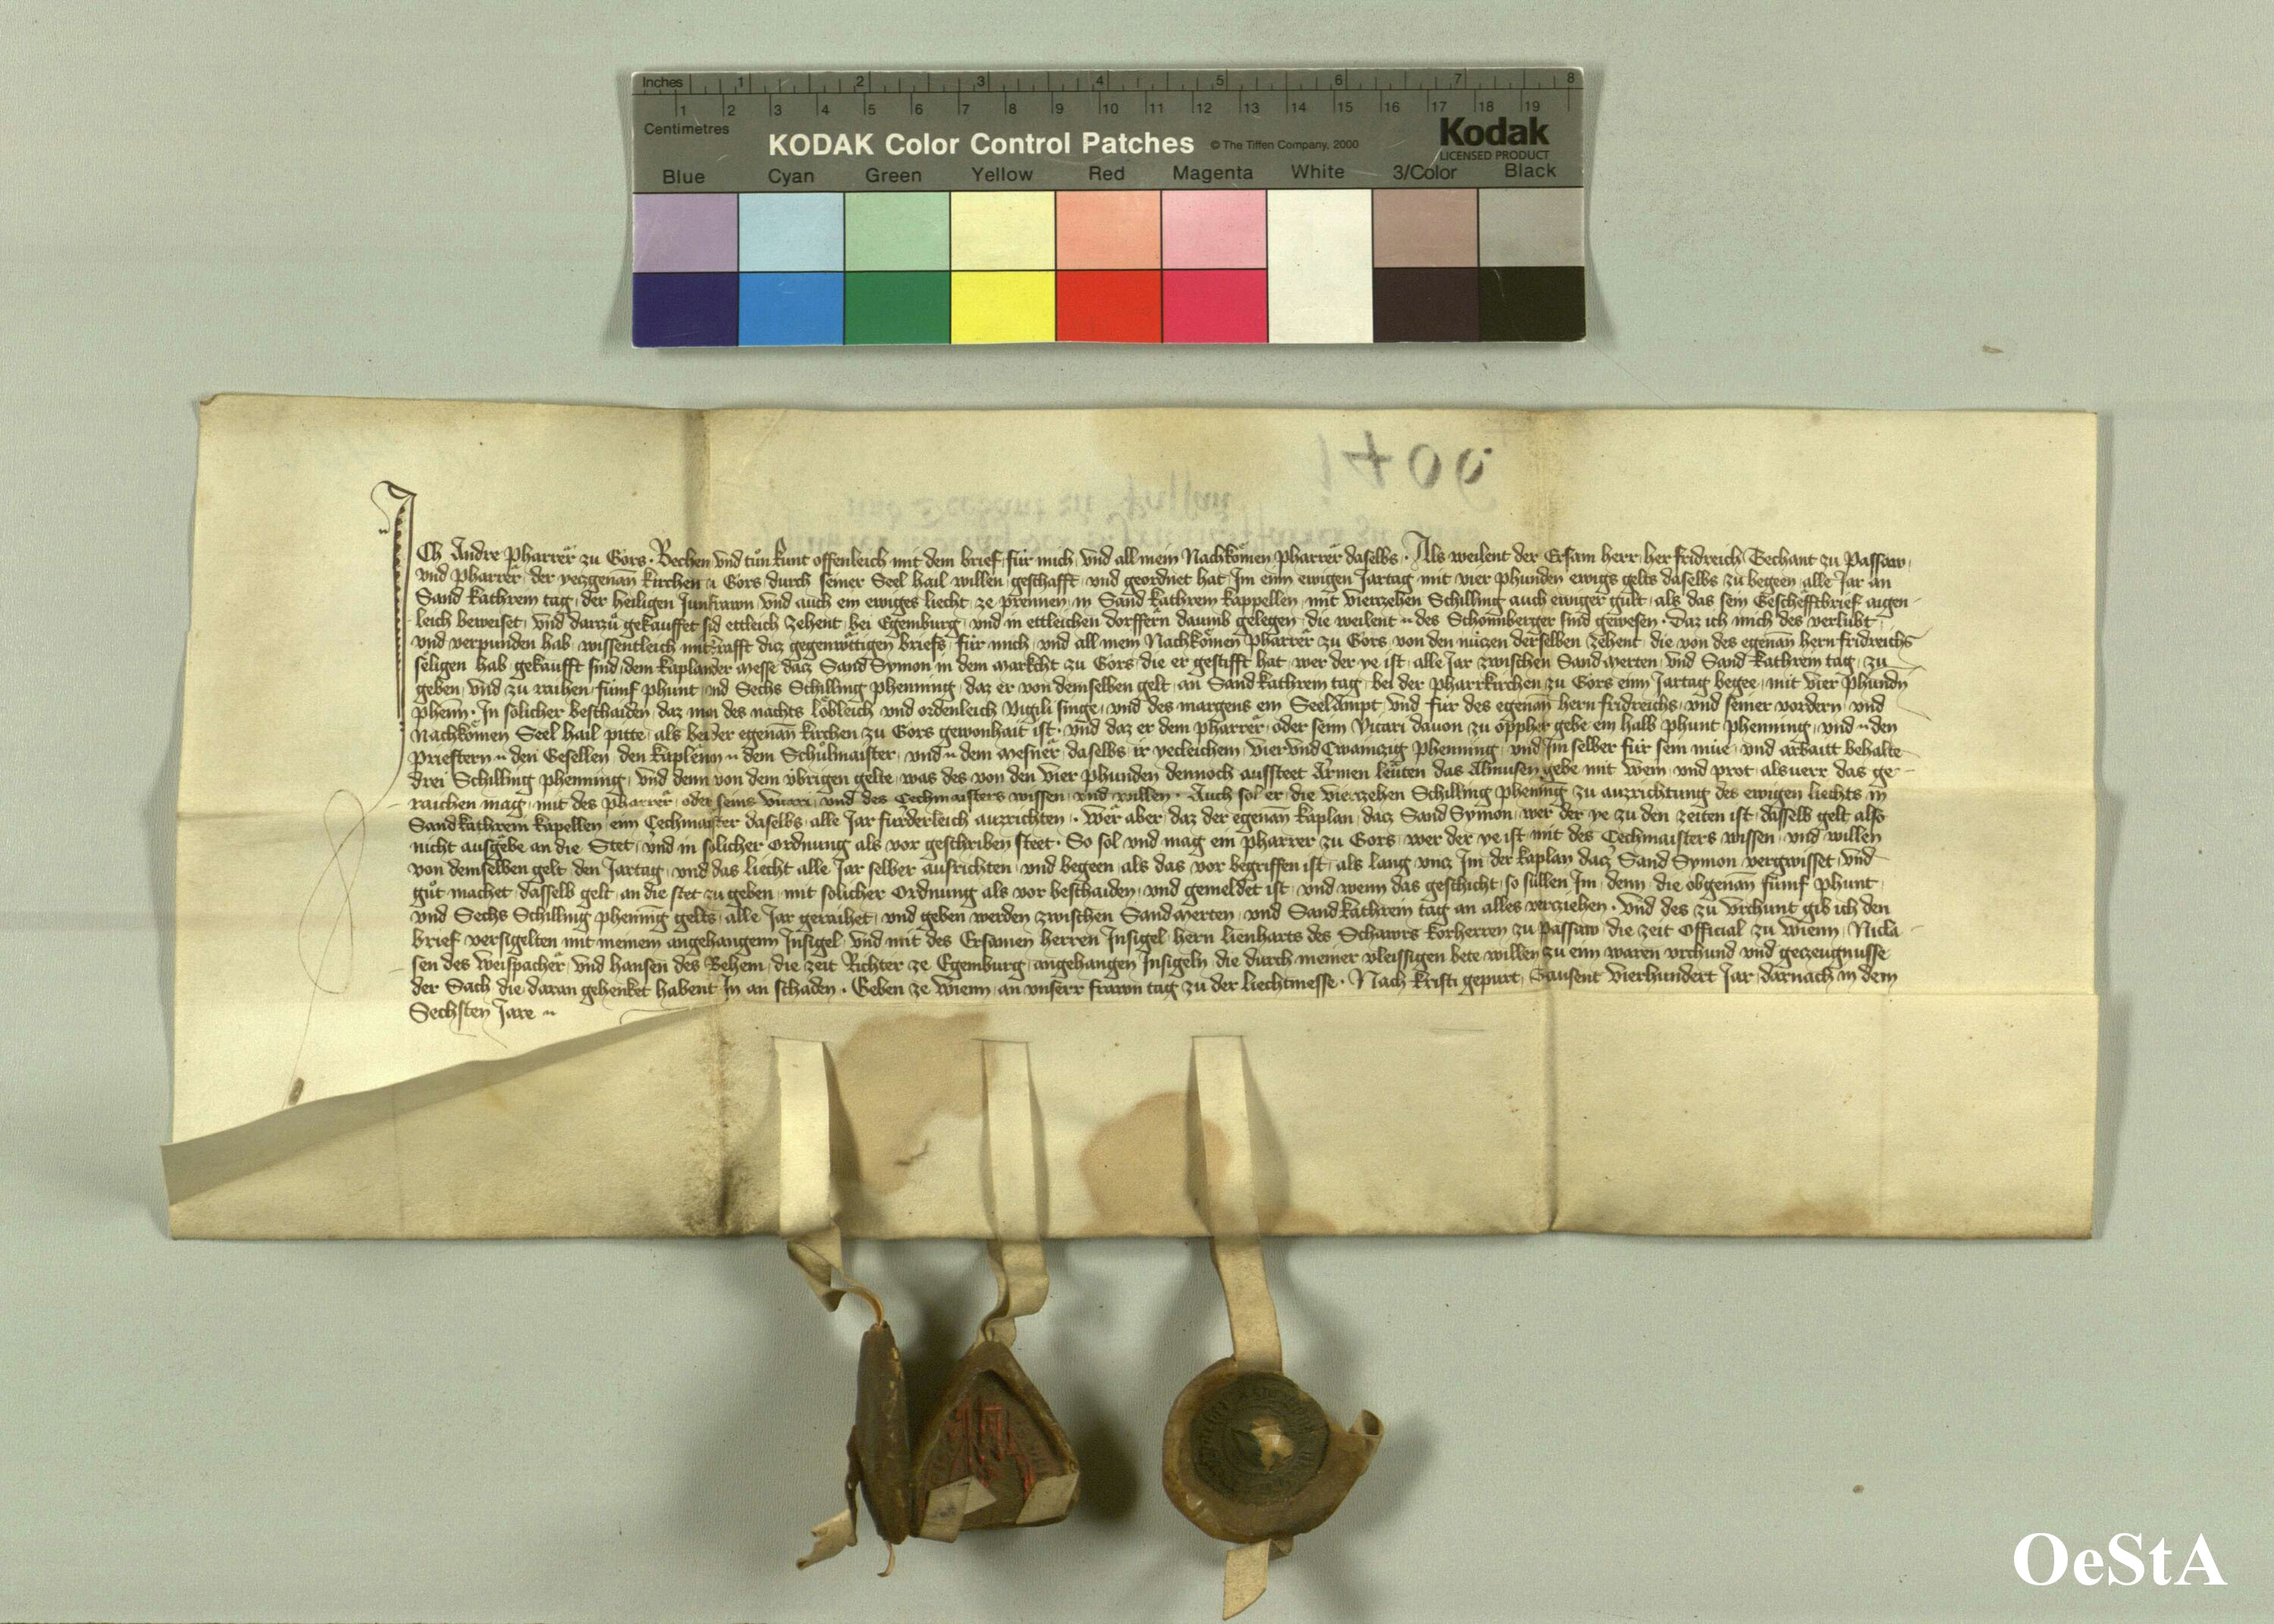 Inches 1 2 3 4 5 6 7 8
1 2 3 4 5 6 7 8 9 10 11 12 13 14 15 16 17 18 19
Centimetres
KODAK Color Control Patches © The Tiffen Company, 2000 Kodak
LICENSED PRODUCT
Blue Cyan Green Yellow Red Magenta White 3/Color Black
Ich Andre Pharrer zu Gors. Vechen vnd tun kunt offenleich mit dem brief fur mich vnd all mein Nachkomen Pharrer daselbs. Als weilent der Ersam herr her fridreich Techant zu Passaw
vnd Pharrer der yeczgenan kirchen Gors durch seiner Seel hail willen geschafft vnd geordnet hat Im ein ewigen Jartag mit vier phunden ewigs gelts daselbs zu begeen alle Jar an
Sand kathrein tag der heiligen Junkfrawn vnd auch ein ewiges liecht ze prennen in Sand kathrein kappellen mit vierczehen Schilling auch ewiger gult als das sein Geschefftbrief aigen
leich beweiset vnd darzu gekauffet ettleich zehent bei Egemburg vnd in ettleichen dorffern daumb gelegen die weilent des Schonnberger sind gewesen. Daz ich mich des verlubt
vnd verpunden hab wissentleich mit krafft dicz gegenwurtigen briefs fur mich vnd all mein Nachkomen Pharrer zu Gors von den nuczen derselben zehent die von des egenan hern fridreichs
seligen hab gekaufft sind dem kaplan der messe dacz Sand Symon in dem markcht zu Gors die er gestifft hat wer der ye ist alle Jar zwischen Sand Merten vnd Sand kathrein tag zu
geben vnd zu raihen funf phunt vnd Sechs Schilling phenning daz er von demselben gelt an Sand kathrein tag bei der pharrkirchen zu Gors einn Jartag begee mit vier phundn
phenn. In solicher beschaiden daz man des nachts lobleich vnd ordenleich Vigili singe vnd des margens ein Seelampt vnd fur des egenan hern fridreichs vnd seiner vordern vnd
Nachkomen Seel hail pitte als bei der egenan kirchen zu Gors gewonhait ist. vnd daz er dem pharrer oder seim Vicari dauon zu oppher gebe ein halb phunt phenning vnd den
Priestern den Gesellen den kaplenn dem Schulmaister vnd dem Mesner daselbs ir yecleichem viervndCwainczig phenning vnd Im selber fur sein mue vnd arbaitt behalte
drei Schilling phenning vnd denn von dem vbrigen gelte was des von den vier phunden dennoch aussteet Armen leuten das Almusen gebe mit wein vnd prot alsuerr das ge
raichen mag mit des pharrer oder seins vicari vnd des Cechmaisters wissen vnd willen. Auch sol er die vierczehen Schilling phening zu auzrichtung des ewigen liechts in
Sand kathrein kapellen einn Cechmaister daselbs alle Jar furderleich auzrichten. Wer aber daz der egenan kaplan dacz Sand Symon wer der ye zu den zeiten ist dasselb gelt alls
nicht ausgebe an die Stet vnd in solicher ordnung als vor geschriben steet. So sol vnd mag ein pharrer zu Gors wer der ye ist mit des Cechmaisters wissen vnd willen
von demselben gelt den Jartag vnd das liecht alle Jar selber aufrichten vnd begeen als das vor begriffen ist als lang vncz Im der kaplan dacz Sand Symon vergwisset vnd
gut machet dasselb gelt an die stet zu geben mit solicher Ordnung als vor beschaiden vnd gemeldet ist vnd wenn das geschicht so sullen Im denn die obgenan funf phunt
vnd Sechs Schilling phening gelts alle Jar geraihet vnd geben werden zwischen Sand Merten vnd Sand kathrein tag an alles verziehen. Vnd des zu vrchunt gib ich den
brief versigelten mit meinem angehangenn Insigel vnd mit des Ersamen herren Insigel hern lienharts des Schawrs korherren zu Passaw die zeit Official zu Wienn Nicla
sen des Weispacher vnd hansen des Behem die zeit Richter ze Egemburg angehangen Insigeln die durch meiner vleissigen bete willen zu ein waren vrchund vnd geczeugnusse
der Sach die daran gehenket habent In an schaden. Geben ze Wienn an vnserr frawn tag zu der liechtmesse. Nach kristi gepurt Tausent vierhundert Jar darnach in dem
Sechsten Jare
OeStA